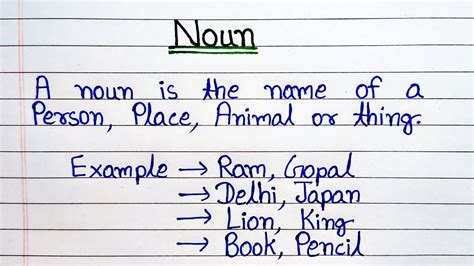 Noun
A noun is the name of a
Person, Place, Animal or thing.
Example → Ram, Gopal
→ Delhi, Japan
→ Lion, King
→ Book, Pencil